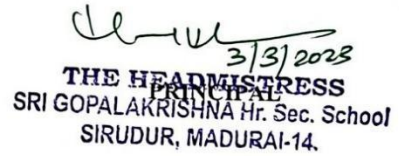 3/3/2023
THE HEADMISTRESS
PRINCIPAL
SRI GOPALAKRISHNA Hr. Sec. School
SIRUDUR, MADURAI-14.